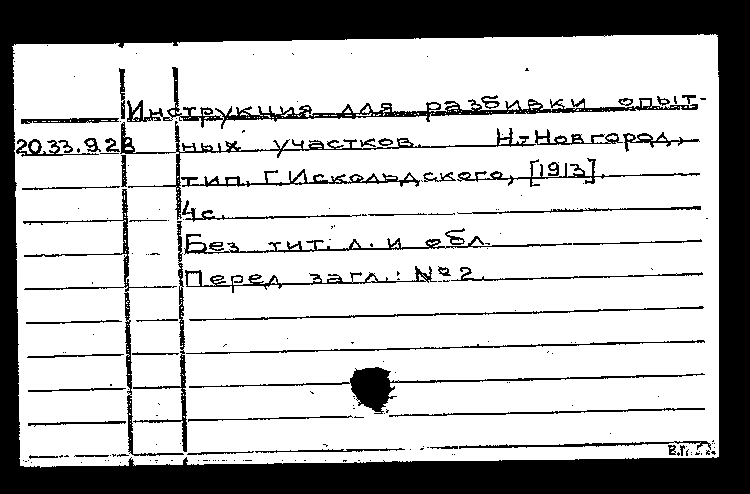 Инструкция для разбивки опыт-
20.33.9.28 ных участков. Н.-Новгород,
тип. Г. Искольдского, [1913].
4 с.
Без тит. л. и обл.
Перед загл.: № 2.